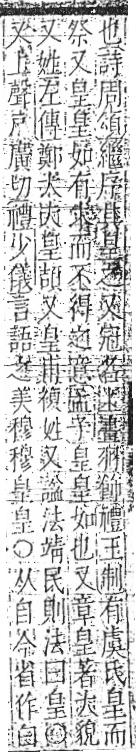 也詩周頌繼序其皇之又冠名畫羽飾禮王制有虞氏皇而
祭又皇皇如有求而不得之意孟子皇皇如也又章皇著夾貌
又姓左傳鄭大夫皇頡又皇甫複姓又諡法靖民則法曰皇○
又上聲戶廣切禮少儀言語之美穆穆皇皇○从自今省作白